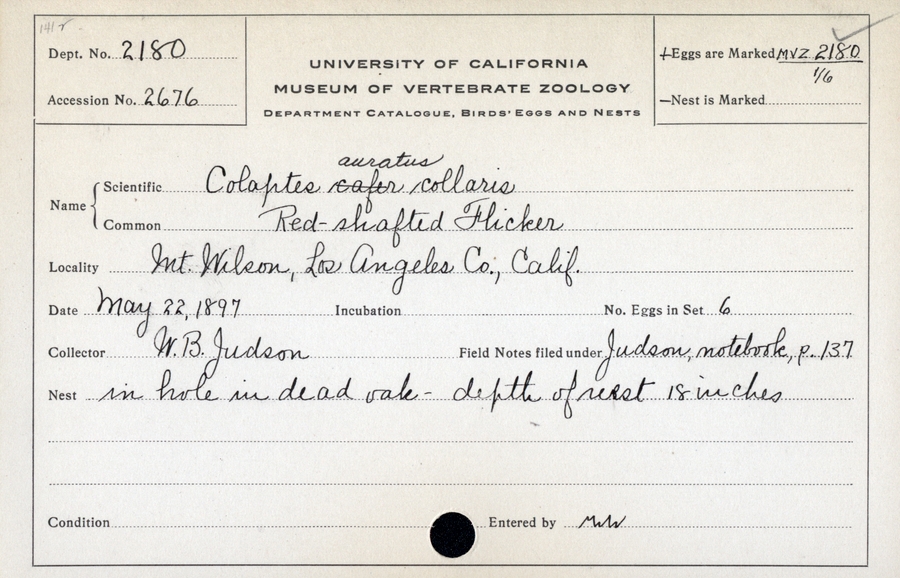 Dept. No. 2180
Accession No. 2676
UNIVERSITY OF CALIFORNIA
MUSEUM OF VERTEBRATE ZOOLOGY
DEPARTMENT CATALOGUE, BIRDS' EGGS AND NESTS
+Eggs are Marked MVZ 2180
1/6
—Nest is Marked
auratus
Name { Scientific Colaptes cafer collaris
Common Red-shafted Flicker
Locality Mt. Wilson, Los Angeles Co., Calif.
Date May 22, 1897 Incubation No. Eggs in Set 6
Collector W.B. Judson Field Notes filed under Judson, notebook, p. 137
Nest in hole in dead oak - depth of nest 18 inches
Condition Entered by